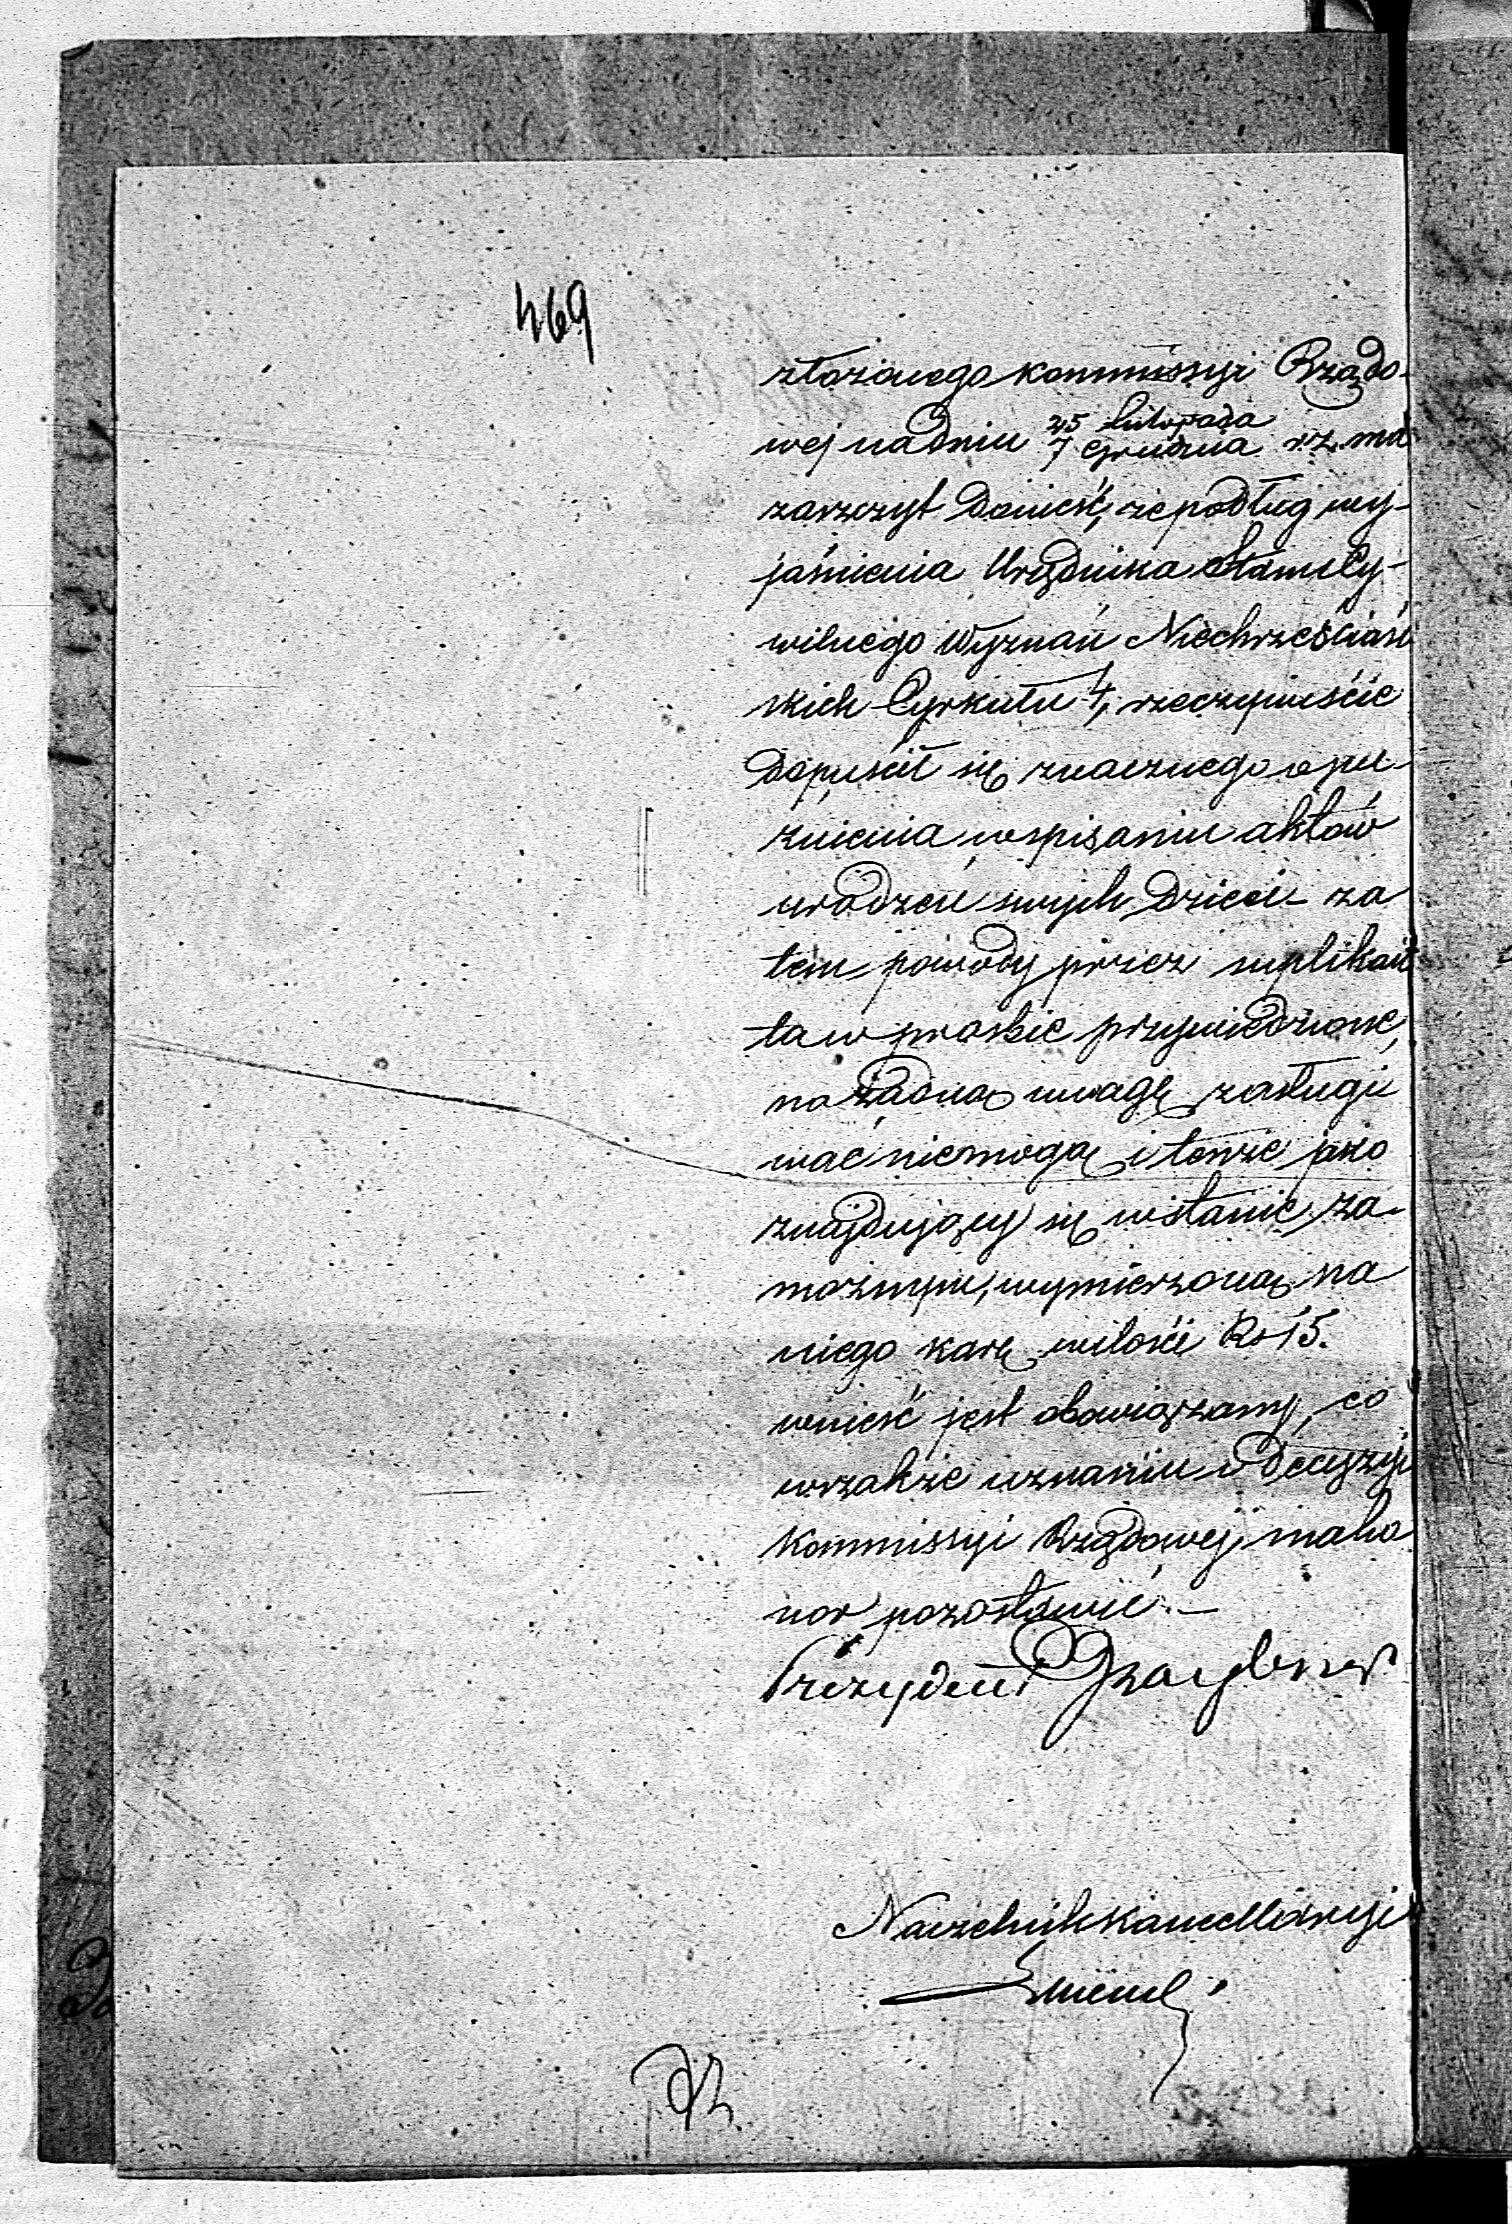 469
złożonego Kommissyi Rządo-
wej na dniu 25 Listopada
7 Grudnia r.z. ma
zaszczyt donieść, że podług wy-
jaśnienia Urzędnika Stanu Cy-
wilnego Wyznań Niechrześciań
skich Cyrkułu 4, rzeczywiście
dopuścił się znacznego opu-
źnienia w spisaniu aktów
urodzeń swych dzieci za
tem powody przez suplikan
ta w prośbie przywiedzione,
na żadną uwagę zasługi
wać niemogą i tenże jako
znajdujący się w stanie za-
możnym, wymierzoną na
niego karę w ilości Rs 15.
wnieść jest obowiązany, co
wszakże uznaniu i Decyzyi
Kommissyi Rządowej ma ho
nor pozostawić.—
Prezydent
Naczelnik Kancellaryi